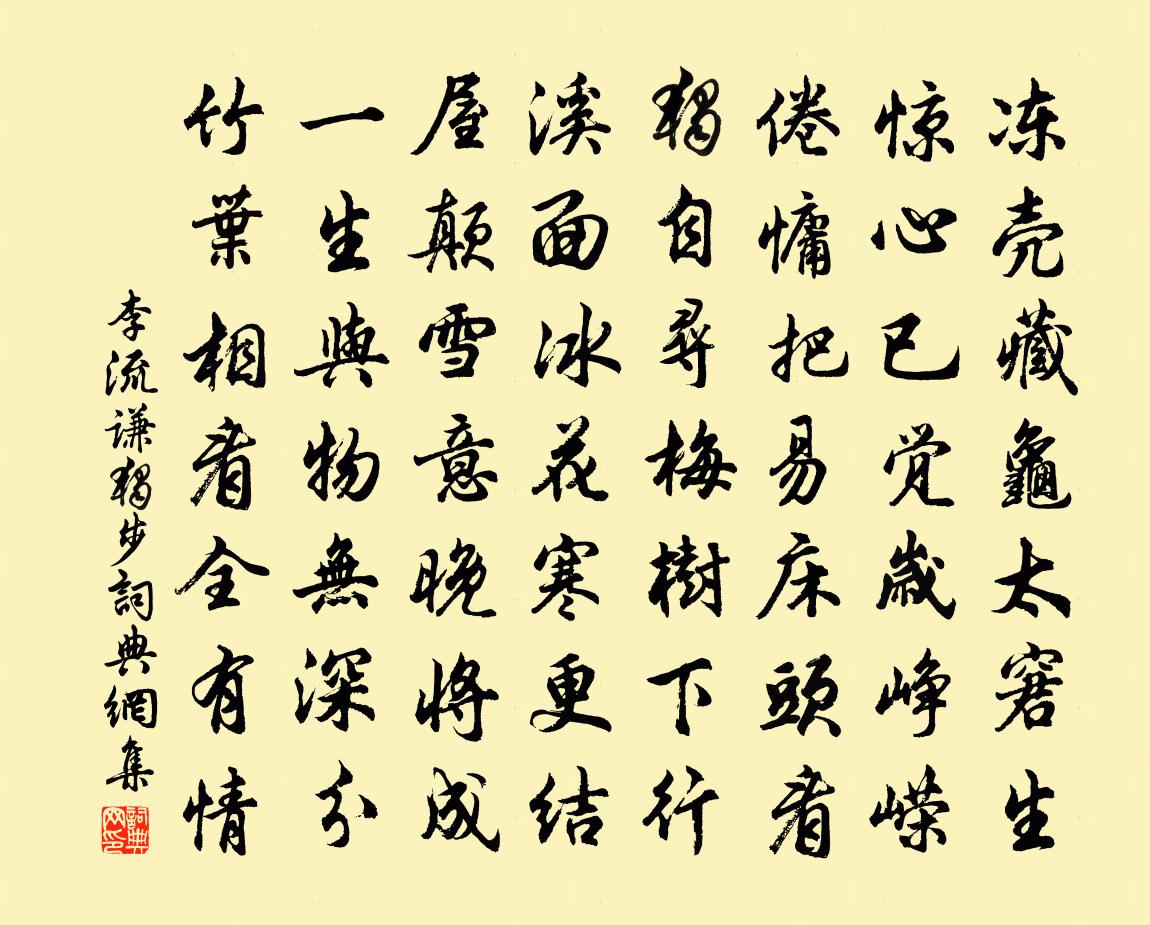 冻壳藏龜太窘生
惊心已觉歲峥嵘
倦慵把易床頭看
獨自尋梅樹下行
溪面冰花寒更结
屋颠雪意晚将成
一生與物無深分
竹葉相看全有情
李流谦獨步詞典網集
詞典網印